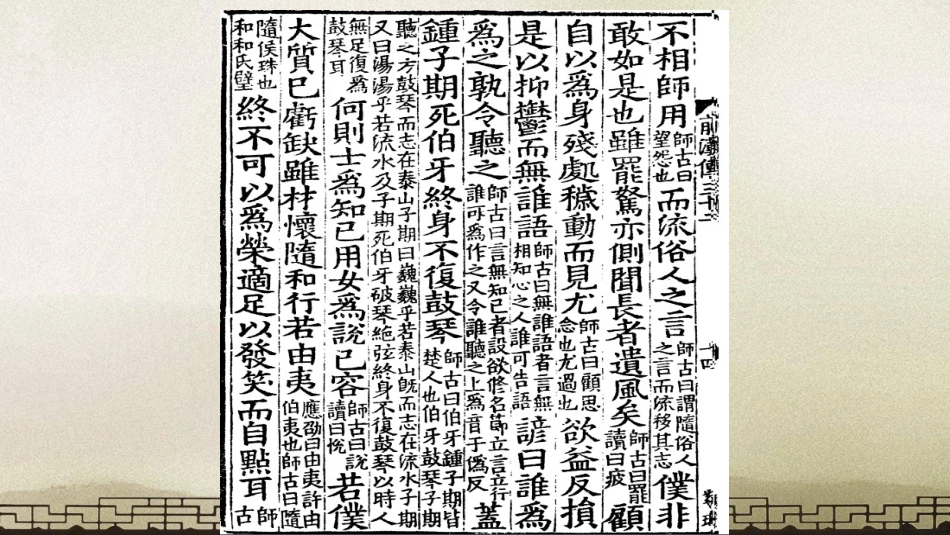 前漢傳三十二 十四
不相師用師古曰望怨也而流俗人之言師古曰謂隨俗人之言而流移其志僕非
敢如是也雖罷駑亦側聞長者遺風矣師古曰罷讀曰疲顧
自以爲身殘處穢動而見尤師古曰顧思念也尤過也欲益反損
是以抑鬱而無誰語師古曰無誰語者言無相知心之人誰可告語諺曰誰爲
爲之孰令聽之師古曰言無知己者設欲修名節立言行誰可爲作之又令誰聽之上爲音于僞反蓋
鍾子期死伯牙終身不復鼓琴師古曰伯牙鍾子期皆楚人也伯牙鼓琴子期
聽之方鼓琴而志在泰山子期曰巍巍乎若泰山旣而志在流水子期
又曰湯湯乎若流水及子期死伯牙破琴絕弦終身不復鼓琴以時人
無足復爲鼓琴耳何則士爲知己用女爲說己容師古曰說讀曰悅若僕
大質已虧缺雖材懷隨和行若由夷應劭曰由夷許由伯夷也師古曰隨
隨侯珠也和和氏璧終不可以爲榮適足以發笑而自點耳師古